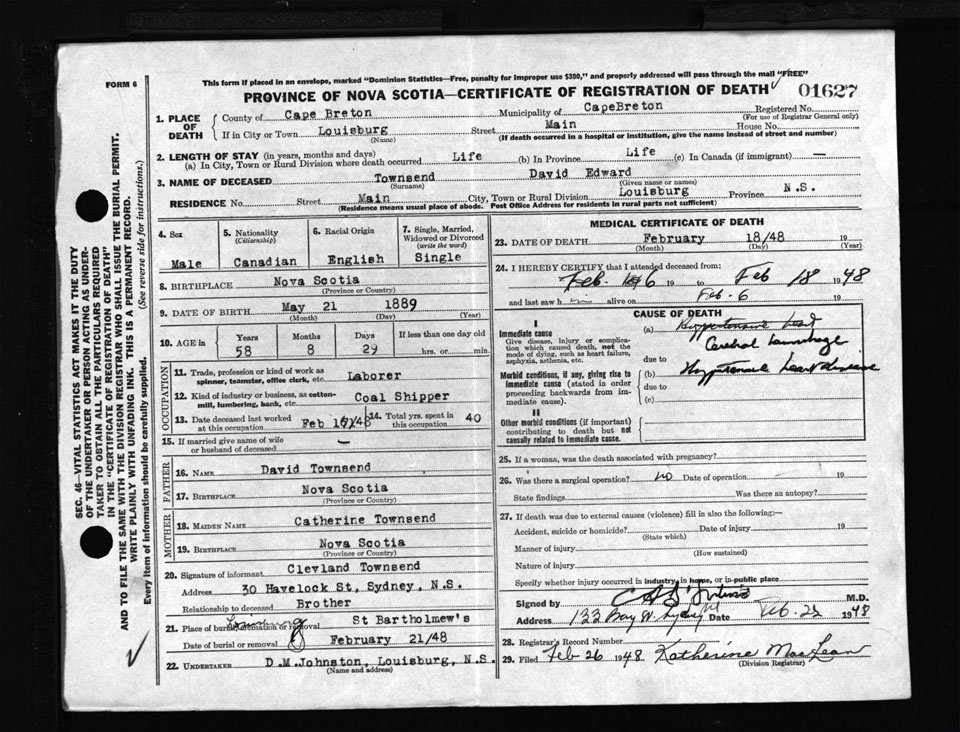 FORM 6
This form if placed in an envelope, marked "Dominion Statistics—Free, penalty for improper use $300," and properly addressed will pass through the mail "FREE"
PROVINCE OF NOVA SCOTIA—CERTIFICATE OF REGISTRATION OF DEATH
01627
1. PLACE OF DEATH
County of Cape Breton Municipality of CapeBreton Registered No.
(For use of Registrar General only)
If in City or Town Louisburg Street Main House No.
(Name) (If death occurred in a hospital or institution, give the name instead of street and number)
2. LENGTH OF STAY (in years, months and days)
(a) In City, Town or Rural Division where death occurred Life (b) In Province Life (c) In Canada (if immigrant) —
3. NAME OF DECEASED Townsend David Edward
(Surname) (Given name or names)
RESIDENCE No. Street Main City, Town or Rural Division Louisburg Province N.S.
(Residence means usual place of abode. Post Office Address for residents in rural parts not sufficient)
4. Sex
Male
5. Nationality
(Citizenship)
Canadian
6. Racial Origin
English
7. Single, Married, Widowed or Divorced
(write the word)
Single
8. BIRTHPLACE Nova Scotia
(Province or Country)
9. DATE OF BIRTH May 21 1889
(Month) (Day) (Year)
10. AGE in
Years Months Days If less than one day old
58 8 29 hrs. or min.
OCCUPATION
11. Trade, profession or kind of work as
spinner, teamster, office clerk, etc. Laborer
12. Kind of industry or business, as cotton-
mill, lumbering, bank, etc. Coal Shipper
13. Date deceased last worked
at this occupation Feb
14. Total yrs. spent in
this occupation 40
15. If married give name of wife
or husband of deceased —
FATHER
16. NAME David Townsend
17. BIRTHPLACE Nova Scotia
(Province or Country)
MOTHER
18. MAIDEN NAME Catherine Townsend
19. BIRTHPLACE Nova Scotia
(Province or Country)
20. Signature of informant Clevland Townsend
Address 30 Havelock St, Sydney, N.S.
Relationship to deceased Brother
21. Place of burial, cremation or removal St Bartholmew's
Date of burial or removal February 21/48
22. UNDERTAKER D.M.Johnston, Louisburg, N.S.
(Name and address)
MEDICAL CERTIFICATE OF DEATH
23. DATE OF DEATH February 18/48 19
(Month) (Day) (Year)
24. I HEREBY CERTIFY that I attended deceased from:
Feb 6 19 to Feb 18 1948
and last saw h alive on Feb. 6 19
CAUSE OF DEATH
I
Immediate cause
Give disease, injury or complica-
tion which caused death, not the
mode of dying, such as heart failure,
asphyxia, asthenia, etc.
(a) Hypertensive Heart
Cerebral hemorrhage
due to
Morbid conditions, if any, giving rise to
immediate cause (stated in order
proceeding backwards from im-
mediate cause).
(b) Hypertensive heart disease
due to
(c)
II
Other morbid conditions (if important)
contributing to death but not
causally related to immediate cause.
25. If a woman, was the death associated with pregnancy?
26. Was there a surgical operation? no Date of operation 19
State findings Was there an autopsy?
27. If death was due to external causes (violence) fill in also the following:—
Accident, suicide or homicide? Date of injury 19
(State which)
Manner of injury
(How sustained)
Nature of injury
Specify whether injury occurred in industry, in home, or in public place
Signed by M.D.
Address 133 Date Feb. 1948
28. Registrar's Record Number
29. Filed Feb 26 1948 Katherine MacLean
(Division Registrar)
SEC. 46—VITAL STATISTICS ACT MAKES IT THE DUTY
OF THE UNDERTAKER OR PERSON ACTING AS UNDER-
TAKER TO OBTAIN ALL THE PARTICULARS REQUIRED
IN THE "CERTIFICATE OF REGISTRATION OF DEATH"
AND TO FILE THE SAME WITH THE DIVISION REGISTRAR WHO SHALL ISSUE THE BURIAL PERMIT.
WRITE PLAINLY WITH UNFADING INK. THIS IS A PERMANENT RECORD.
Every item of information should be carefully supplied. (See reverse side for instructions.)